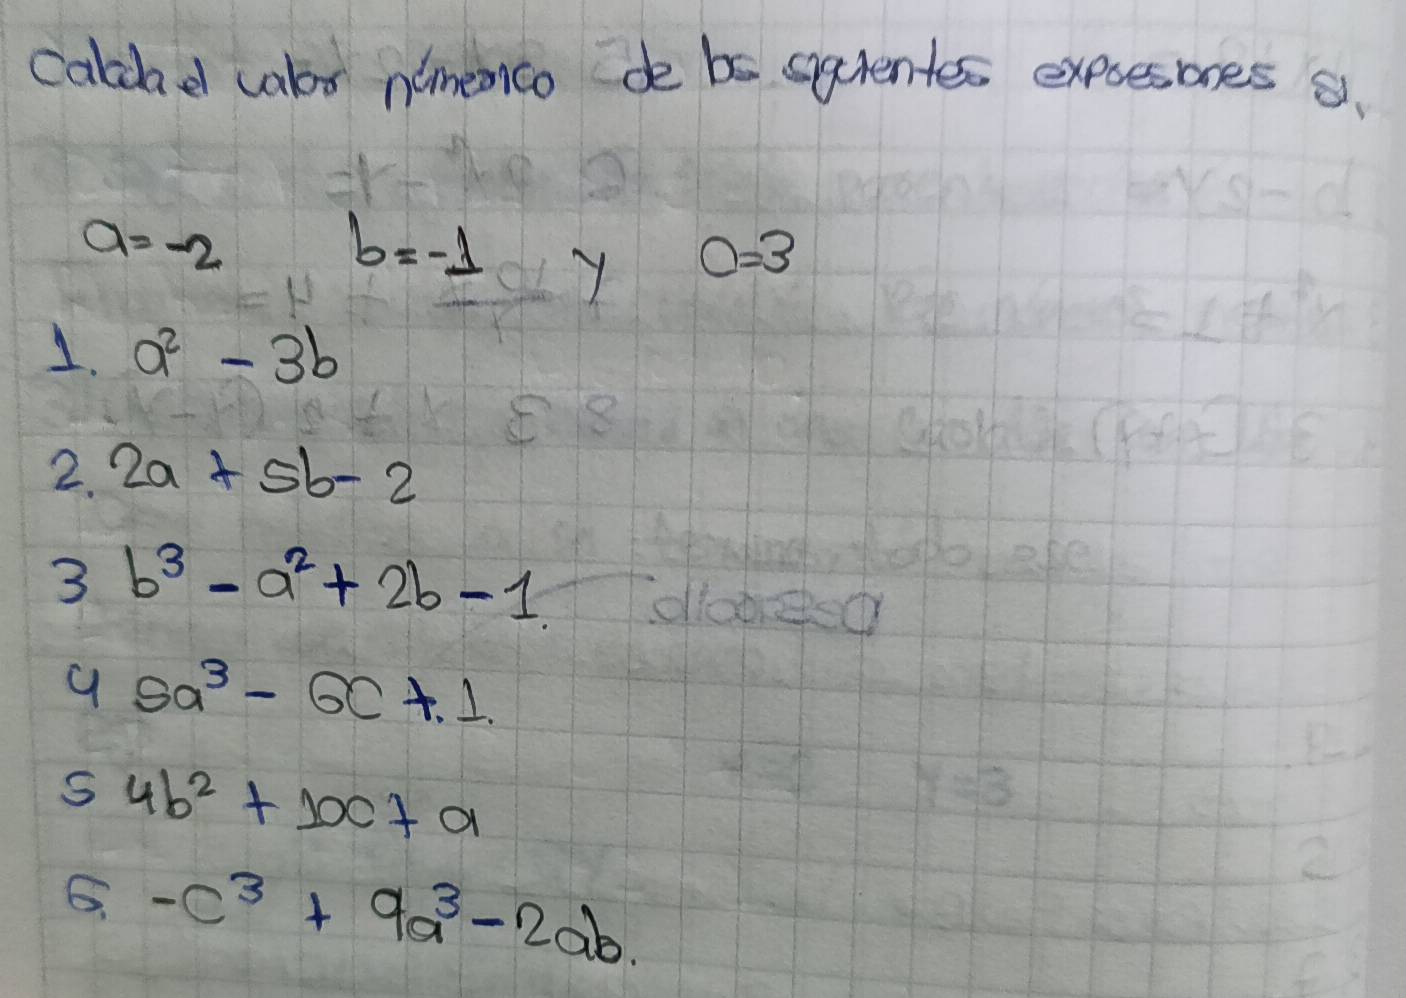 Calcula el valor númerico de los siguientes expresiones si.
a=-2 b=-1 y c=3
1. a² - 3b
2. 2a + 5b- 2
3 b³ - a² + 2b - 1.
4 5a³ - 6C +. 1.
5 4b² + 10C + a
6. -C³ + 9a³ - 2ab.